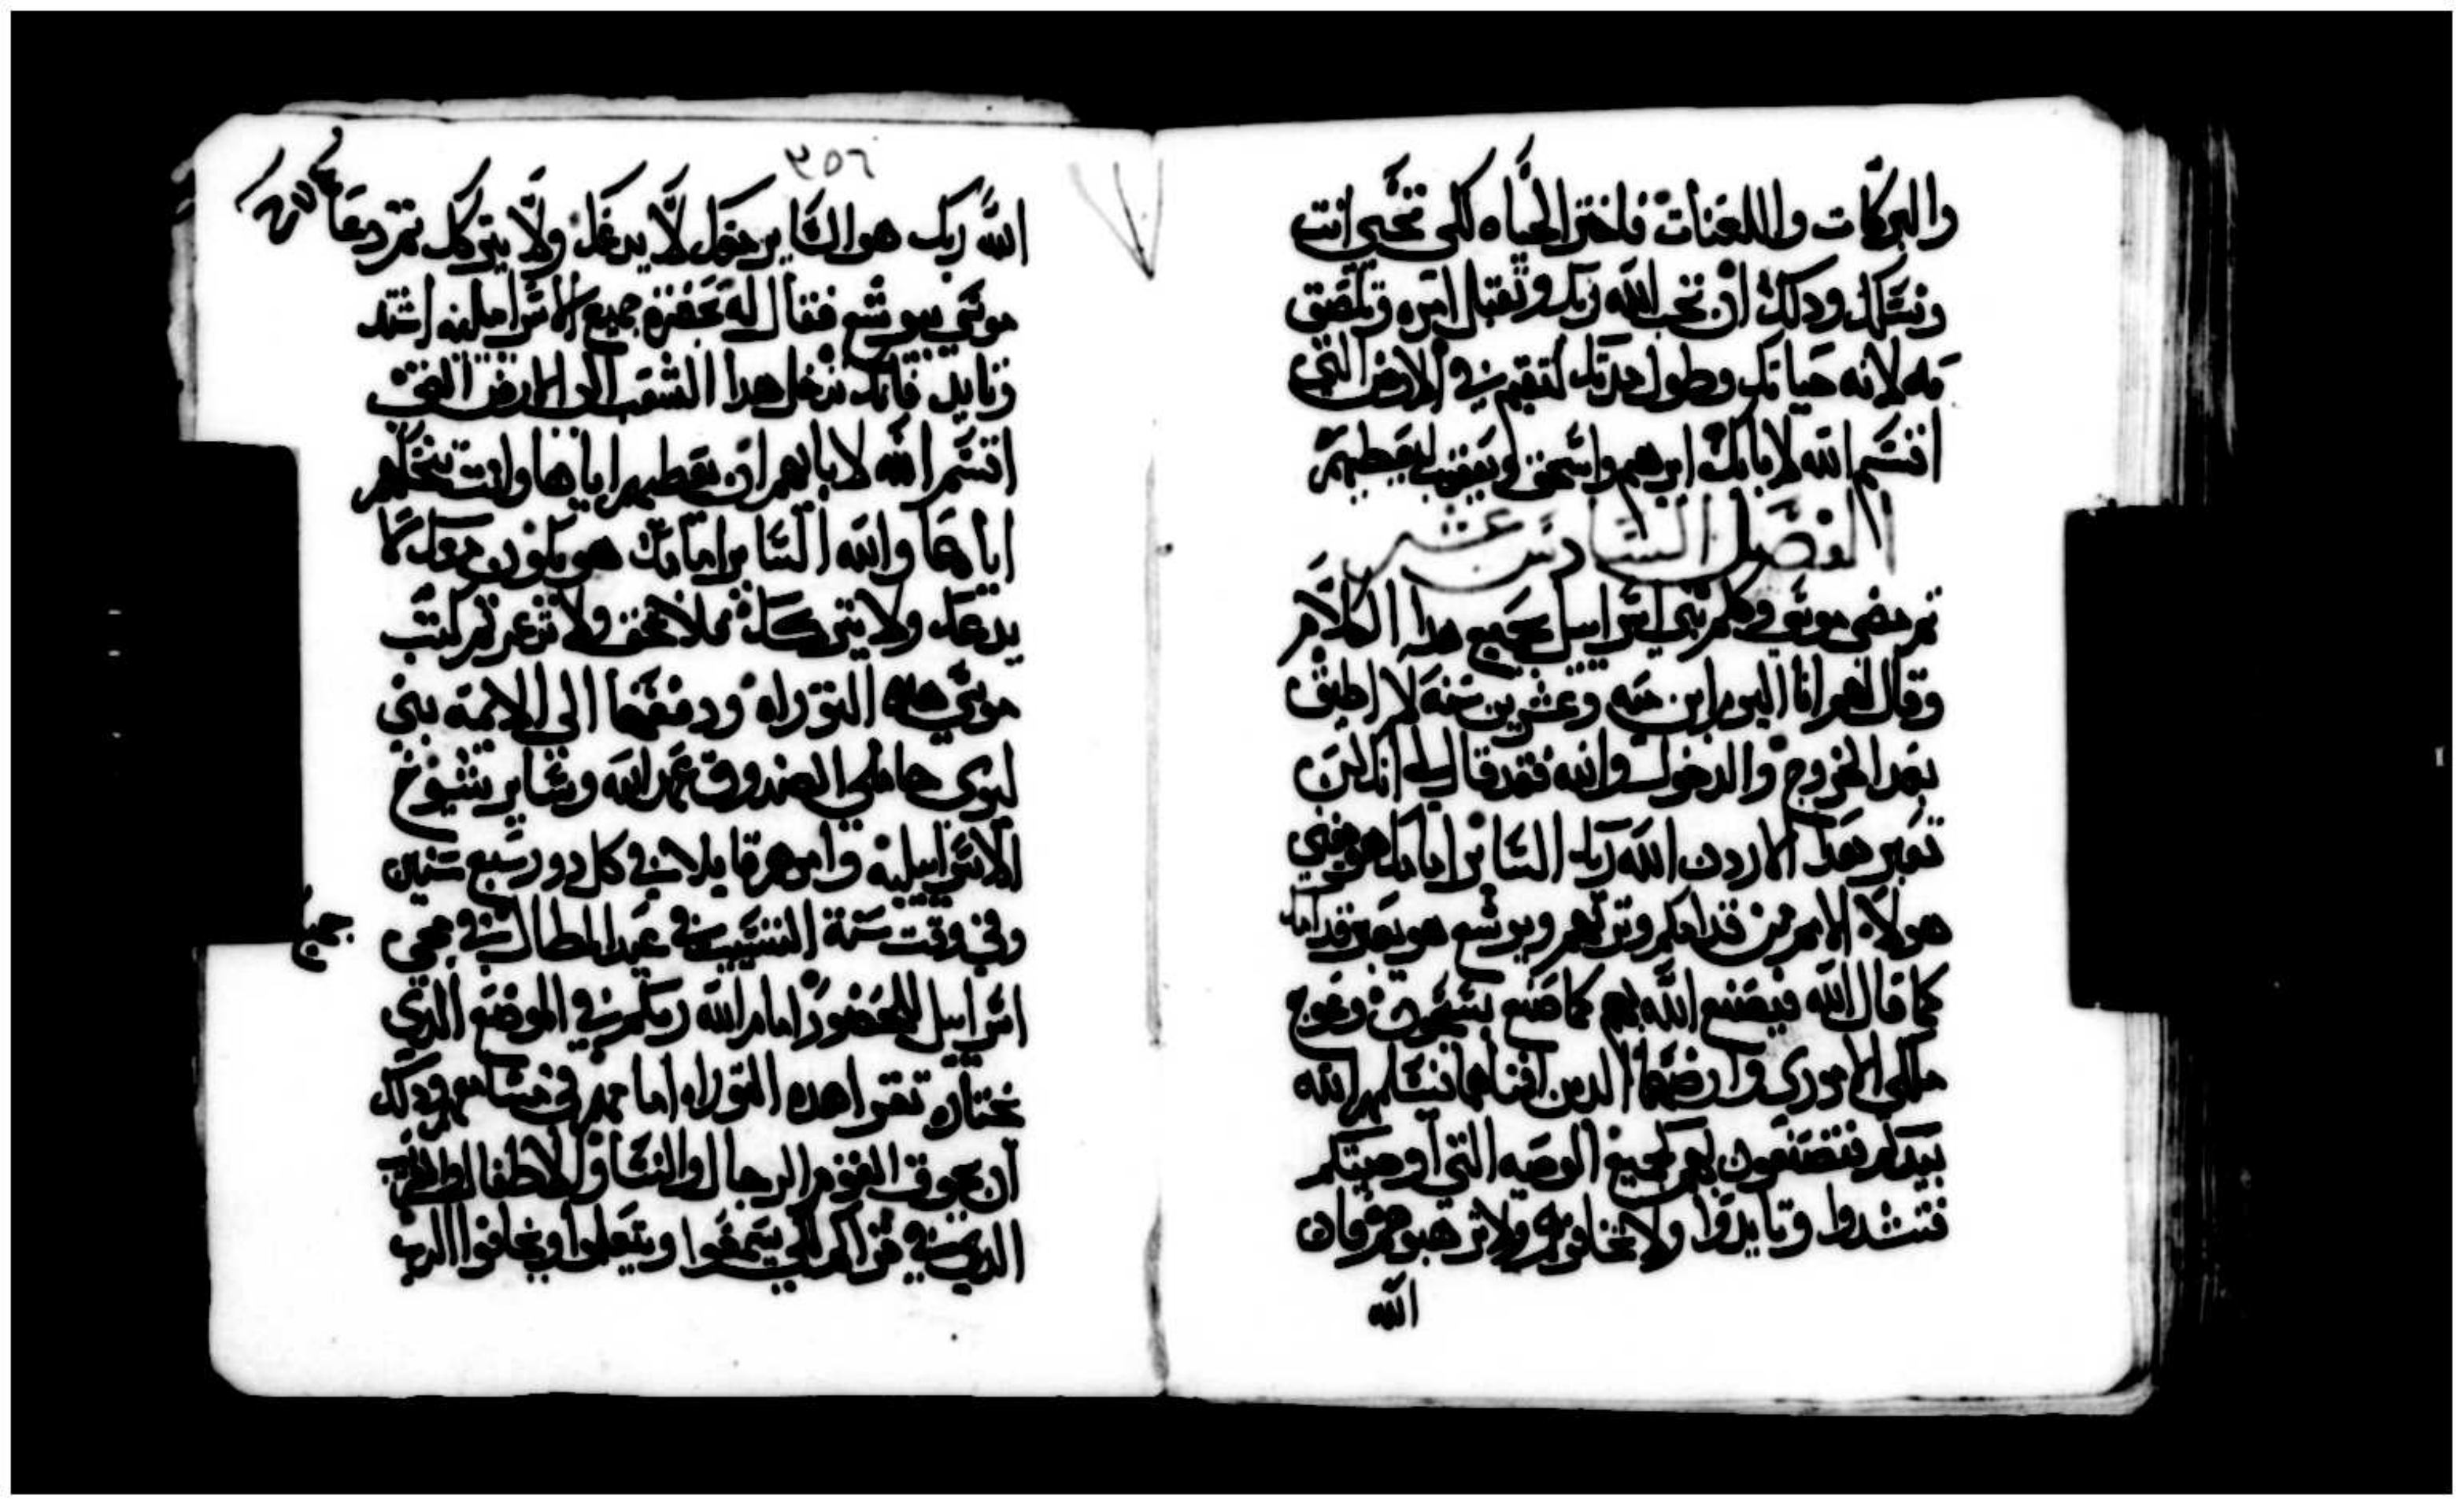 والبركات واللعنات فاختر الحياه لكى تحيى انت
ونسلك ودلك ان تحب الله ربك وتقبل امره وتلصق
به لانه حياتك وطول مدتك لتقيم في الارض التي
اقسم الله لابايك ابرهيم واسحق ويعقوب ليعطيهم
الفصل السادس عشر
تم مضى موسى وكلم بني اسراييل بجميع هدا الكلام
وقال لهم انا اليوم ابن مية وعشرين سنه لا اطيق
بعد الخروج والدخول والله فقد قال لي انك لن
تعبر هدا الاردن الله ربك الساير امامك هو يفني
هولاء الامم من قدامكم وترتهم ويوشع هو يعبر قدامك
كما قال الله فيصنع الله بهم كما صنع بسيحون وعوج
ملكي الاموري وارضهما الدين افناهما فيسلمهم الله
بيدكم فتصنعون بهم كجميع الوصيه التي اوصيتكم
فتشدوا وتايدوا ولا تخافوهم ولا ترهبوهم فان
الله
٣٥٦
الله ربك هو الساير معك لا يدعك ولا يتركك تم دعا
موسى بيوشع فقال له بحضرة جميع الاسراييليه اشتد
وتايد فانك تدخل هدا الشعب الى الارض التي
اقسم الله لابايهم ان يعطيهم اياها وانت تنحلهم
اياها والله الساير امامك هو يكون معك لا
يدعك ولا يتركك فلا تخف ولا تدعر تم كتب
موسى هده التوراه ودفعها الى الايمه بني
ليوى حاملي الصندوق عهد الله وساير شيوخ
الاسراييليه وامرهم قايلا في كل دور سبع سنين
وفي وقت سنة التسييب في عيد المظال في مجى
جميع
اسراييل للحضور امام الله ربكم في الموضع الدي
يختاره تقرا هده التوراه امامهم في مسامعهم ودلك
ان يجوق القوم الرجال والنسا والاطفال والغريب
الدي في قراكم لكي يسمعوا ويتعلموا ويخافوا الرب